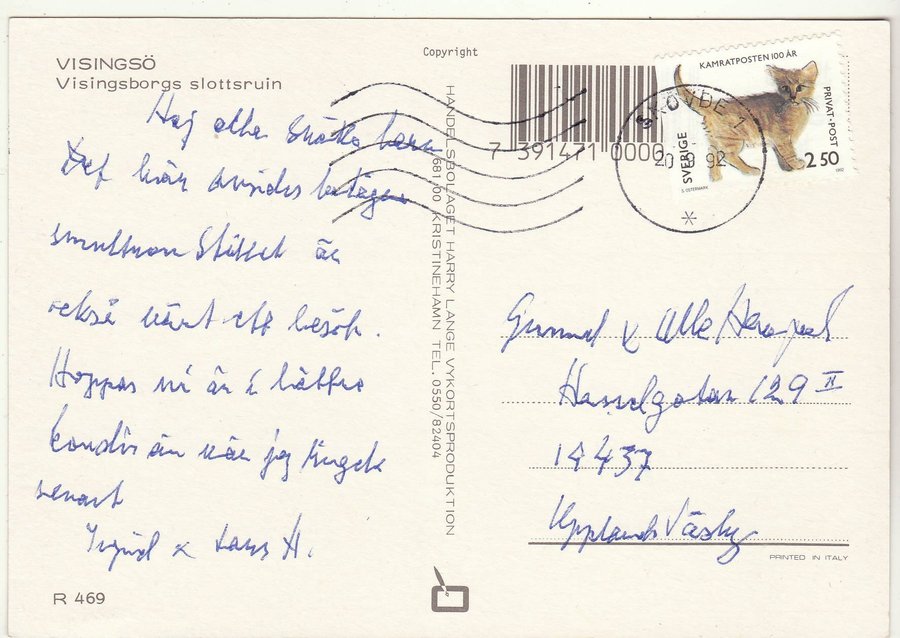 VISINGSÖ
Visingsborgs slottsruin
Hej
Det här
Stället är
också värt ett besök.
Hoppas ni är i bättre
kondis än när jag ringde
senast
Ingrid & Lars H.
R 469
Copyright
HANDELSBOLAGET HARRY LANGE VYKORTSPRODUKTION
681 00 KRISTINEHAMN TEL. 0550/82404
7 391471 0000
SKÖVDE 1
20 6 92
KAMRATPOSTEN 100 ÅR
PRIVAT-POST
SVERIGE
2 50
S. ÖSTERMARK
1992
Gunnel & Olle
Hasselgatan 129 II
19437
Upplands Väsby
PRINTED IN ITALY